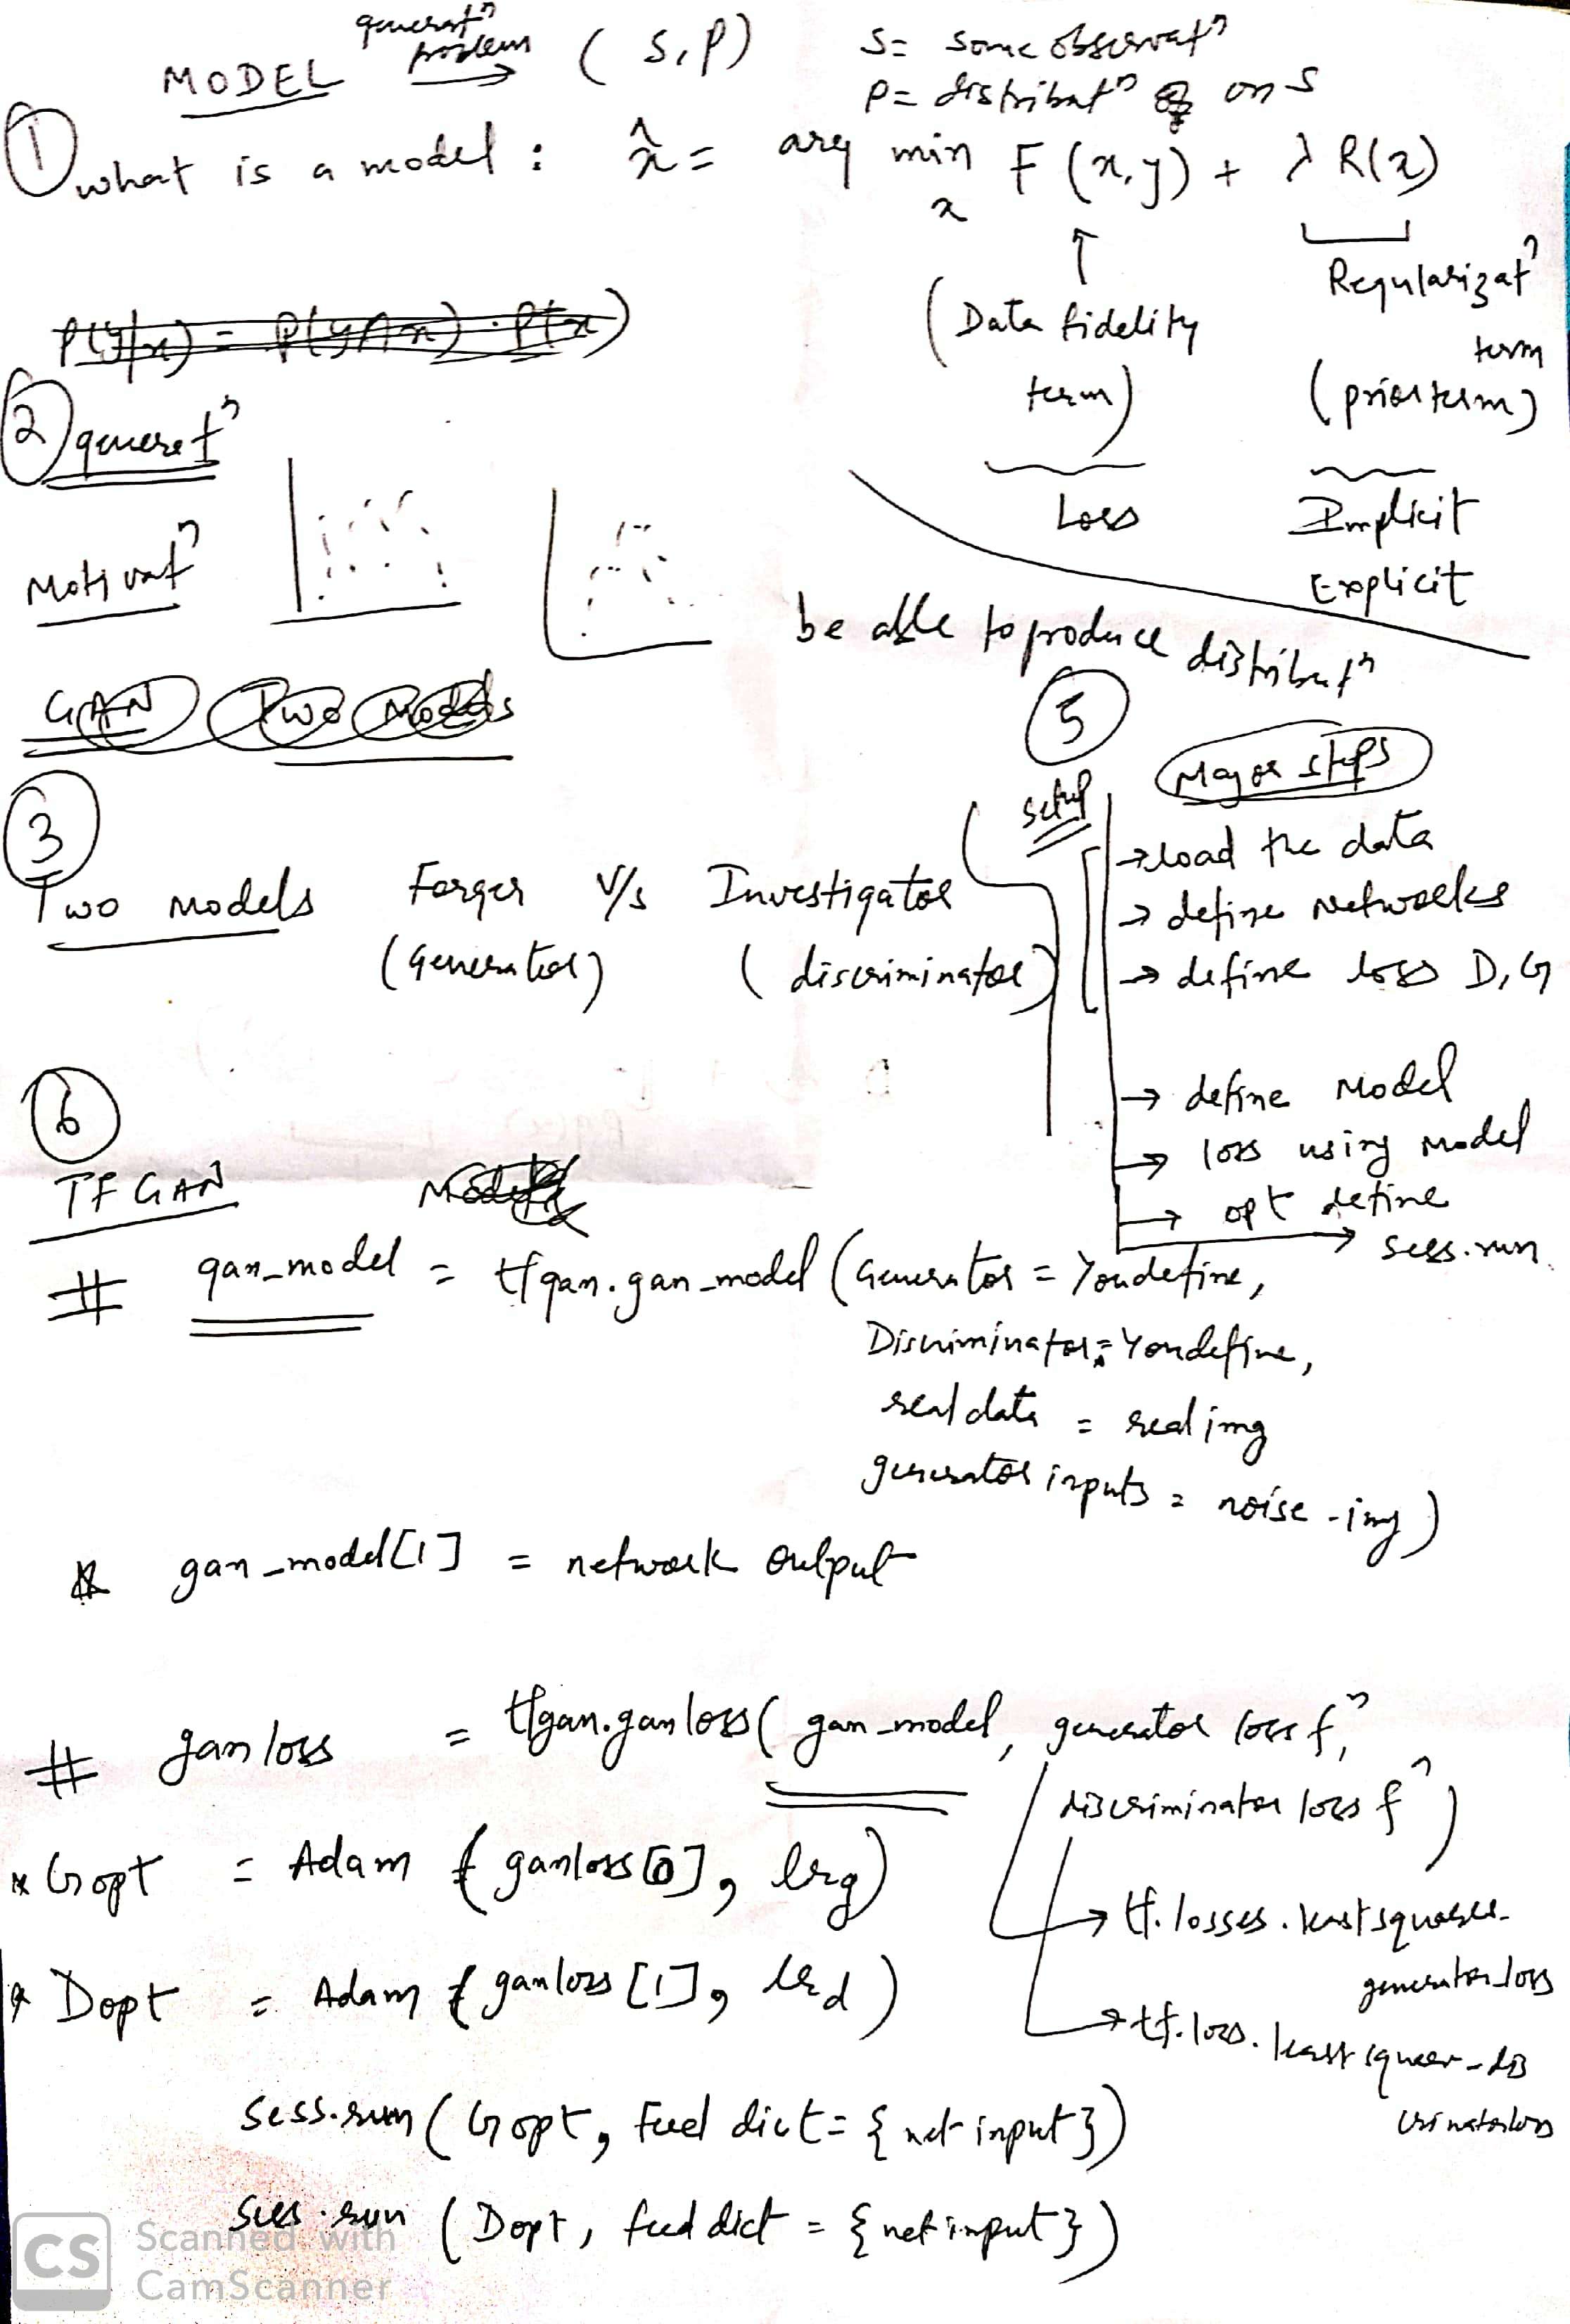 MODEL generatⁿ problem → ( S, P )
S = some observatⁿ
P = distributⁿ on S
① what is a model : x̂ = arg min F (x,y) + λ R(x)
x
↑
(Data fidelity term)
Regularizatⁿ term
(prior term)
P(y/x) = P(y∩x) . P(x)
Loss
Implicit
Explicit
② generatⁿ
Motivatⁿ
be able to produce distributⁿ
GAN Two Models
③
Two Models Forger V/s Investigator
(Generator) (discriminator)
⑤
setup
Major steps
→ load the data
→ define Networks
→ define loss D, G
→ define Model
→ loss using Model
→ opt define
→ sess.run
⑥
TF GAN
# gan_model = tfgan.gan_model (Generator = Youdefine,
Discriminator = Youdefine,
real data = real img
generator inputs = noise - img)
* gan_model[1] = network output
# gan loss = tfgan.gan loss ( gan_model, generator loss fⁿ,
discriminator loss fⁿ )
* Gopt = Adam ( ganloss[0], lrg)
→ tf.losses.leastsquares_
generator_loss
* Dopt = Adam ( ganloss [1], lrd )
→ tf.loss.least squar_dis
criminatorloss
sess.run ( Gopt, Feed dict = { net input })
sess.run ( Dopt, feed dict = { net input })
CS Scanned with
CamScanner